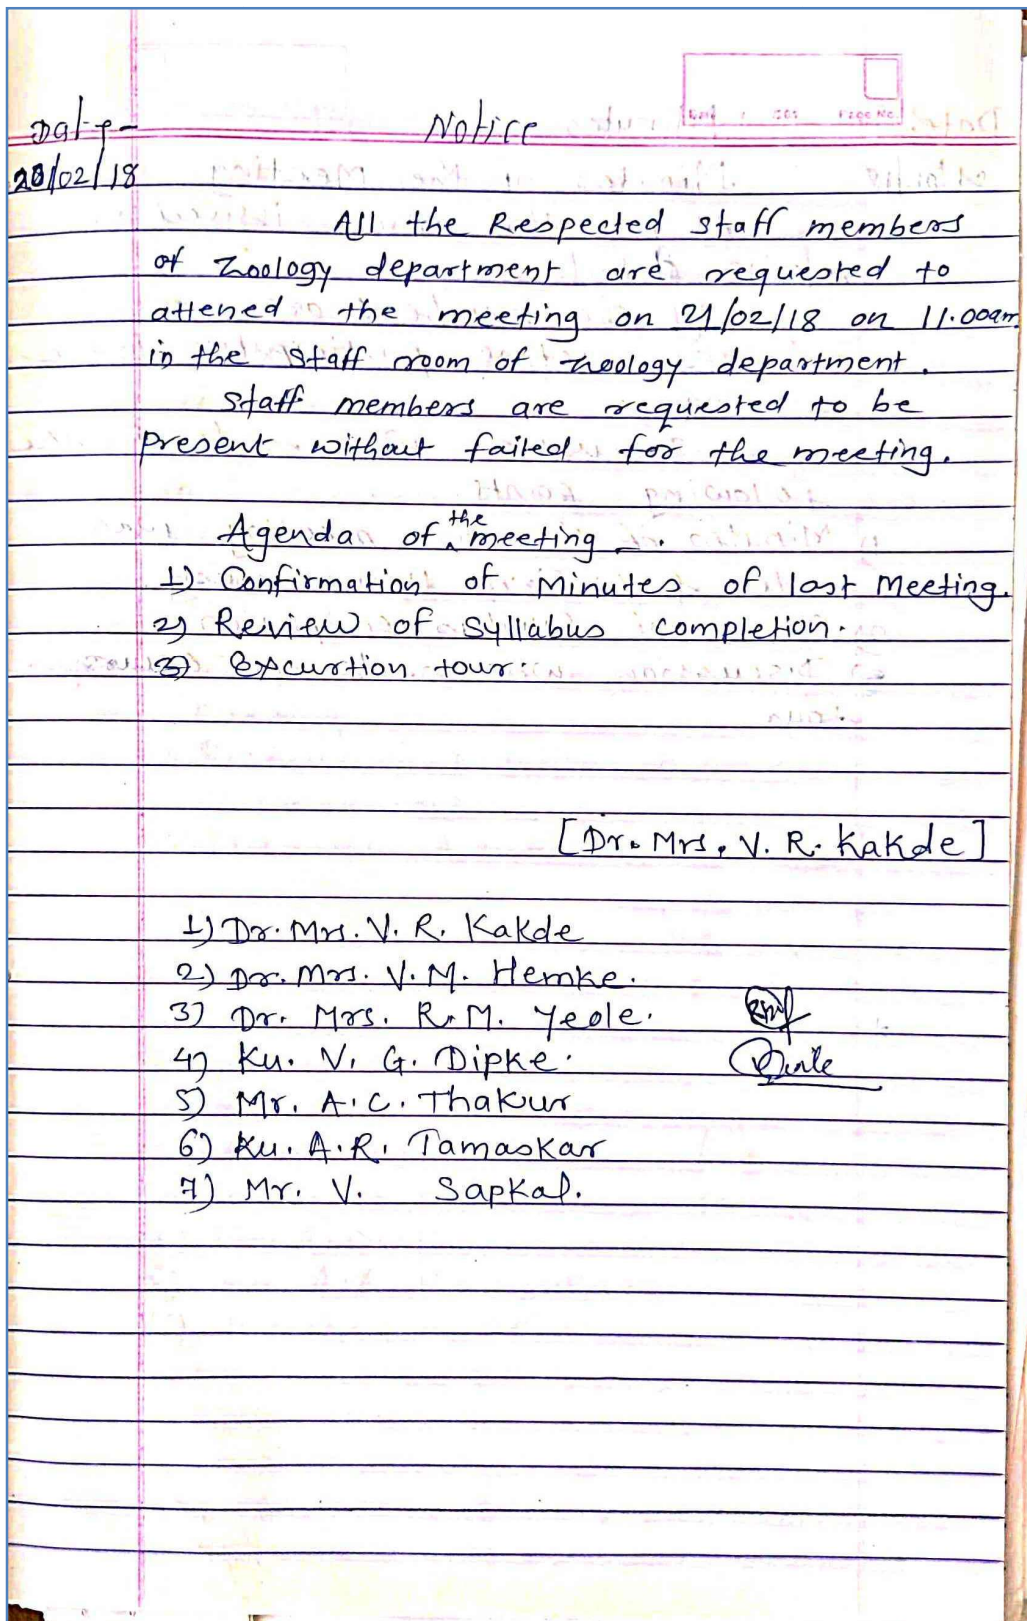 Date- Notice
20/02/18
All the Respected staff members
of zoology department are requested to
attened the meeting on 21/02/18 on 11.00am
in the staff room of zoology department.
staff members are requested to be
present without failed for the meeting.
Agenda of the meeting -.
1) Confirmation of Minutes of last Meeting.
2) Review of syllabus completion.
3) Excurtion tour.
[Dr. Mrs. V. R. Kakde]
1) Dr. Mrs. V. R. Kakde
2) Dr. Mrs. V. M. Hemke.
3) Dr. Mrs. R. M. Yeole.
4) Ku. V. G. Dipke.
5) Mr. A. C. Thakur
6) Ku. A. R. Tamaskar
7) Mr. V. Sapkal.